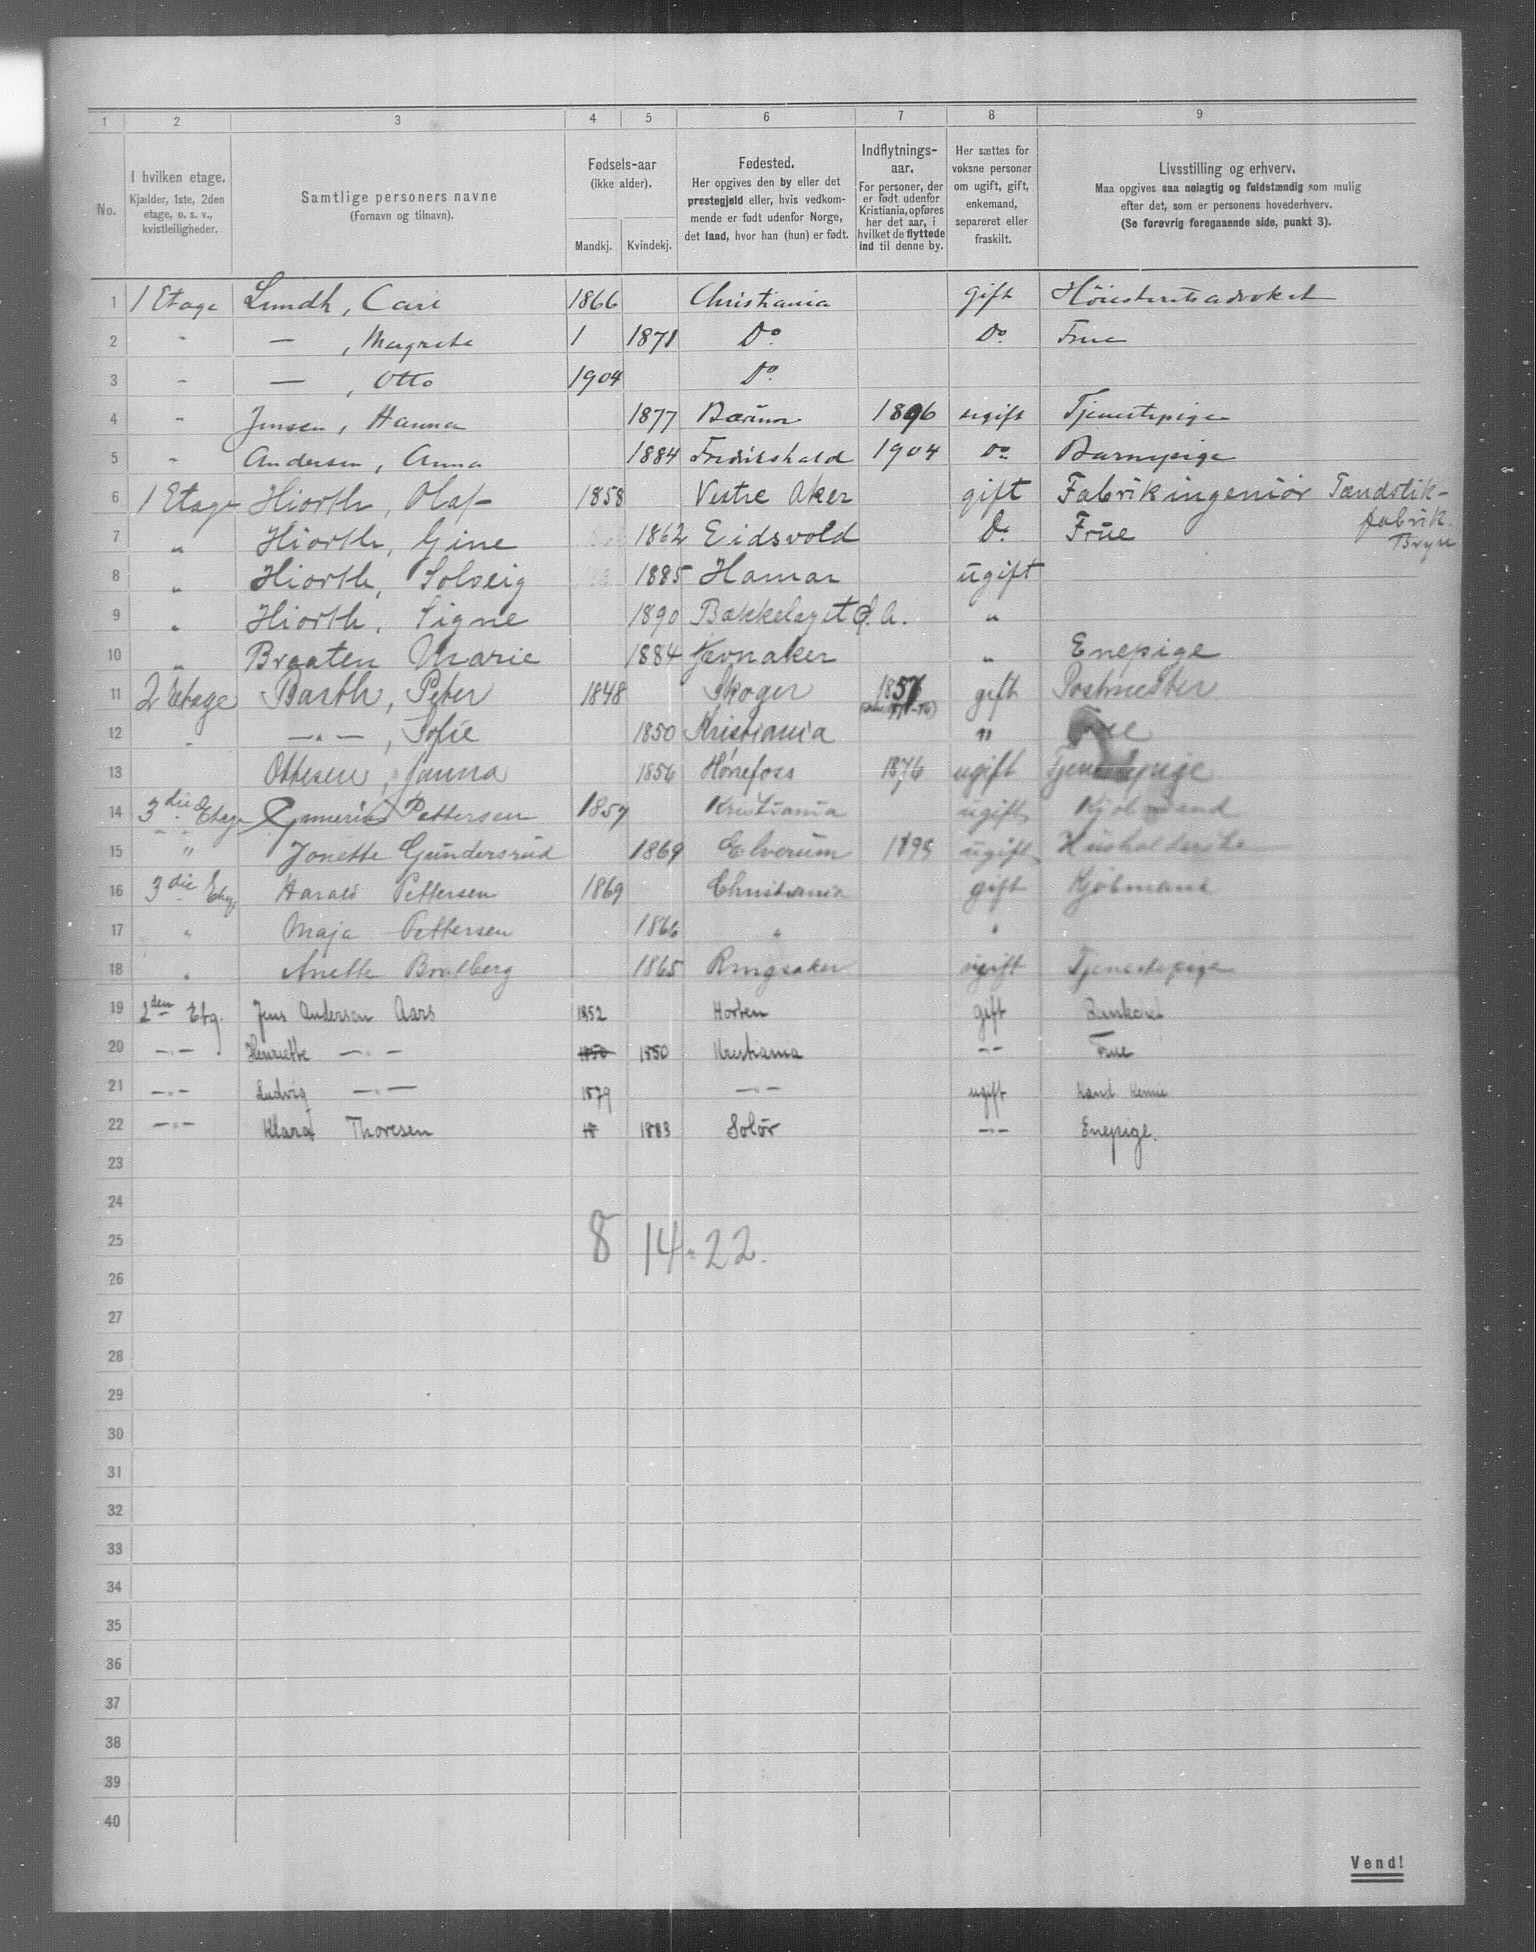 1 2 3 4 5 6 7 8 9
No.
I hvilken etage.
Kjælder, 1ste, 2den
etage, o. s. v.,
kvistleiligheder.
Samtlige personers navne
(Fornavn og tilnavn).
Fødsels-aar
(ikke alder).
Mandkj. Kvindekj.
Fødested.
Her opgives den by eller det
prestegjeld eller, hvis vedkom-
mende er født udenfor Norge,
det land, hvor han (hun) er født.
Indflytnings-
aar.
For personer, der
er født udenfor
Kristiania, opføres
her det aar, i
hvilket de flyttede
ind til denne by.
Her sættes for
voksne personer
om ugift, gift,
enkemand,
separeret eller
fraskilt.
Livsstilling og erhverv.
Maa opgives saa nøiagtig og fuldstændig som mulig
efter det, som er personens hovederhverv.
(Se forøvrig foregaaende side, punkt 3).
1 1 Etage Lundh, Carl 1866 Christiania gift Høiesteretsadvokat
2 " — , Magrete 1 1871 Do Do Frue
3 " — , Otto 1904 Do
4 " Jensen, Hanna 1877 Bærum 1896 ugift Tjenestepige
5 " Andersen, Anna 1884 Fredrikshald 1904 Do Barnepige
6 1 Etage Hiorth, Olaf 1858 Vestre Aker gift Fabrikingeniør Tændstik-
fabrik.
Bryn
7 " Hiorth, Gine 1862 Eidsvold Do Frue
8 " Hiorth, Solveig 1885 Hamar ugift
9 " Hiorth, Signe 1890 Bækkelaget Ø. A. "
10 " Braaten Marie 1884 Jævnaker " Enepige
11 2 Etage Barth, Peter 1848 Skoger 1857 gift Postmester
12 " —"—, Sofie 1850 Kristiania " Frue
13 Ottesen, Janna 1856 Hønefoss 1876 ugift Tjenestepige
14 3die Etage Pettersen 1857 Kristiania ugift Kjøbmand
15 " Jonette Gundersrud 1869 Elverum 1895 ugift Husholderske
16 3die Etg. Harald Pettersen 1869 Christiania gift Kjøbmand
17 " Maja Pettersen 1866 " "
18 " Anette Bratberg 1865 Ringsaker ugift Tjenestepige
19 2den Etg. Jens Andersen Aars 1852 Horten gift
20 —"— Henriette —"— 1850 1850 Kristiania —"— Frue
21 —"— Ludvig —"— 1879 —"— ugift Kand. Kemie
22 —"— Klara Thoresen 18 1883 Solør —"— Enepige.
23
24
25 8 14 = 22.
26
27
28
29
30
31
32
33
34
35
36
37
38
39
40
Vend!